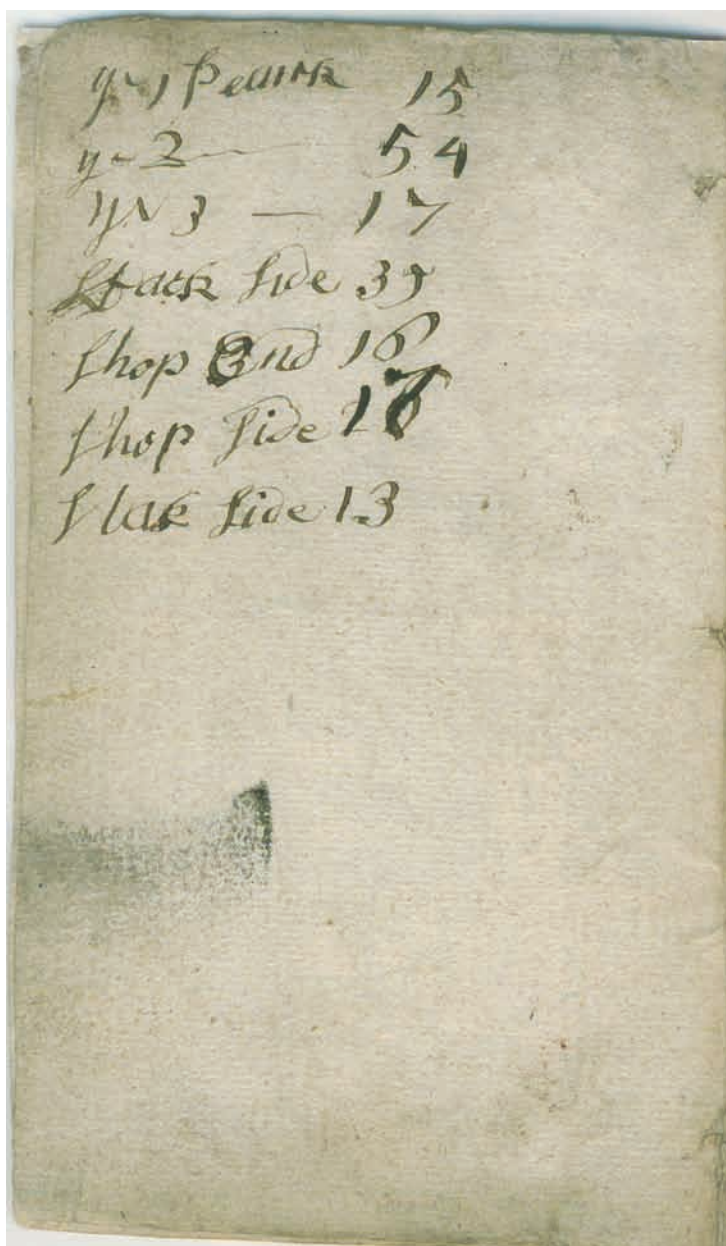 ye 1 Pearck 15
ye 2 — 54
ye 3 — 17
Stack Side 39
Shop End 16
Shop Side
Stak Side 13